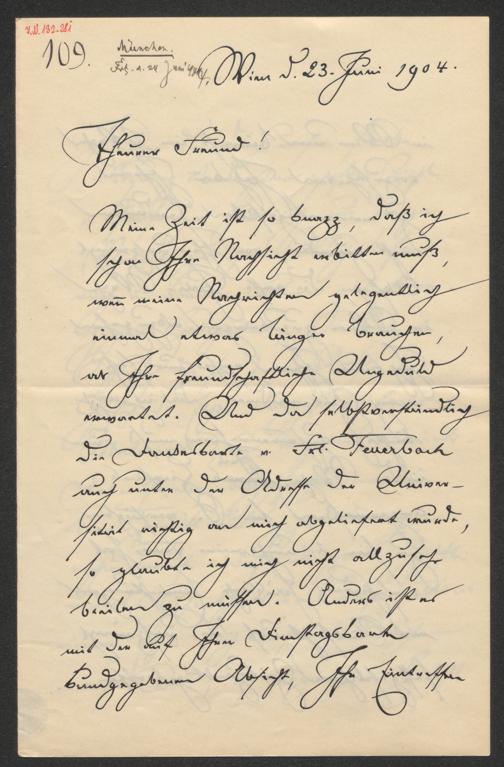 I.N. 132.281
109.
München.
Wien d. 23. Juni 1904.
Theurer Freund!
Meine Zeit ist so knapp, daß ich
schon Ihre Nachsicht erbitten muß,
wen̅ meine Nachrichten gelegentlich
einmal etwas länger brauchen,
als Ihre freundschaftliche Ungeduld
erwartet. Und da selbstverständlich
die Dankeskarte v. Frl. Feuerbach
auch unter der Adresse der Univer-
sität richtig an mich abgeliefert wurde,
so glaubte ich mich nicht allzusehr
beeilen zu müssen. Anders ist es
mit der auf Ihrer Dienstagskarte
kundgegebenen Absicht, Ihr Eintreffen